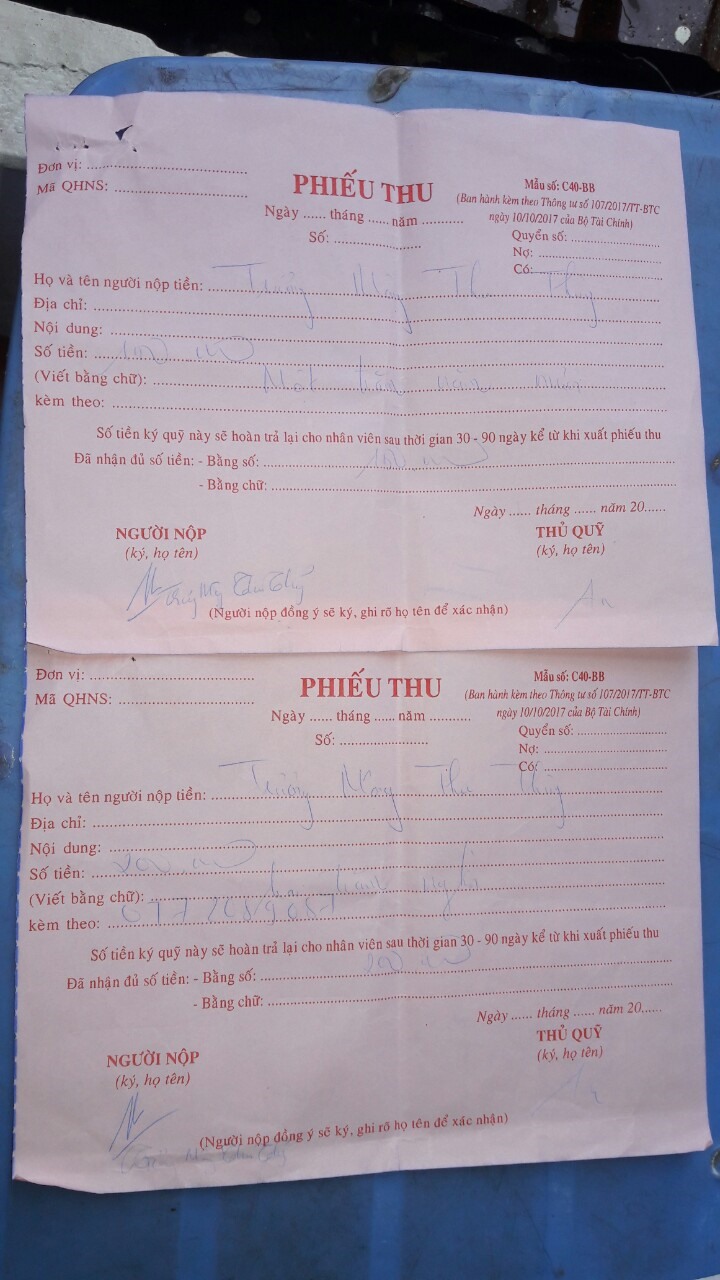 Đơn vị: ............................
Mã QHNS: ............................
PHIẾU THU
Ngày ...... tháng ...... năm ............
Số: ........................
Mẫu số: C40-BB
(Ban hành kèm theo Thông tư số 107/2017/TT-BTC
ngày 10/10/2017 của Bộ Tài Chính)
Quyển số: ........................
Nợ: ........................
Có: ........................
Họ và tên người nộp tiền: Trương Mộng Thu Thủy
Địa chỉ: ........................
Nội dung: ........................
Số tiền: 100
(Viết bằng chữ): Một trăm
kèm theo: ........................
Số tiền ký quỹ này sẽ hoàn trả lại cho nhân viên sau thời gian 30 - 90 ngày kể từ khi xuất phiếu thu
Đã nhận đủ số tiền: - Bằng số: 100
- Bằng chữ: ........................
Ngày ...... tháng ...... năm 20......
NGƯỜI NỘP
(ký, họ tên)
THỦ QUỸ
(ký, họ tên)
An
(Người nộp đồng ý sẽ ký, ghi rõ họ tên để xác nhận)
Đơn vị: ............................
Mã QHNS: ............................
PHIẾU THU
Ngày ...... tháng ...... năm ............
Số: ........................
Mẫu số: C40-BB
(Ban hành kèm theo Thông tư số 107/2017/TT-BTC
ngày 10/10/2017 của Bộ Tài Chính)
Quyển số: ........................
Nợ: ........................
Có: ........................
Họ và tên người nộp tiền: Trương Mộng Thu Thủy
Địa chỉ: ........................
Nội dung: ........................
Số tiền:
(Viết bằng chữ):
kèm theo:
Số tiền ký quỹ này sẽ hoàn trả lại cho nhân viên sau thời gian 30 - 90 ngày kể từ khi xuất phiếu thu
Đã nhận đủ số tiền: - Bằng số:
- Bằng chữ: ........................
Ngày ...... tháng ...... năm 20......
NGƯỜI NỘP
(ký, họ tên)
THỦ QUỸ
(ký, họ tên)
An
(Người nộp đồng ý sẽ ký, ghi rõ họ tên để xác nhận)